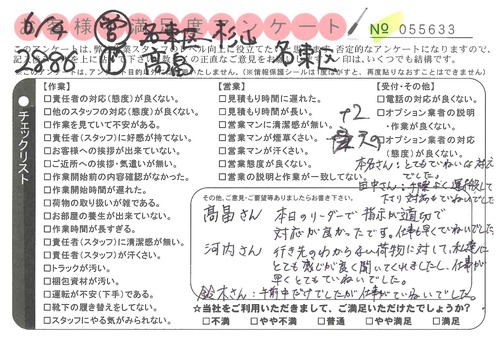 お客様満足度アンケート
№ 055633
6/4 営 名東区 杉山 名東区
このアンケートは、弊社業スタッフのレベル向上に役立てたく思います。否定的なアンケートになりますので、
※このアンケートは、いたしません。(※情報保護シールは1度はがすと、再度貼りなおすことはできません)
チェックリスト
【作業】
□責任者の対応(態度)が良くない。
□他のスタッフの対応(態度)が良くない。
□作業を見ていて不安がある。
□責任者(スタッフ)に好感が持てない。
□お客様への挨拶が出来ていない。
□ご近所への挨拶・気遣いが無い。
□作業開始前の内容確認がなかった。
□作業開始時間が遅れた。
□荷物の取り扱いが雑である。
□お部屋の養生が出来ていない。
□作業時間が長すぎる。
□責任者(スタッフ)に清潔感が無い。
□責任者(スタッフ)が汗くさい。
□トラックが汚い。
□梱包資材が汚い。
□運転が不安(下手)である。
□靴下の履き替えをしてない。
□スタッフにやる気がみられない。
【営業】
□見積もり時間に遅れた。
□見積もり時間が長い。
□営業マンに清潔感が無い。
□営業マンが煙草くさい。
□営業マンが汗くさい。
□営業態度が良くない。
□営業の説明と作業が一致してない。
【受付・その他】
□電話の対応が良くない。
□オプション業者の説明
・作業が良くない。
□オプション業者の対応
(態度)が良くない。
+2
とてもていねいな対応
でした。
田中さん:手際よく選別して
下さり対応もていねいでした
その他、ご意見・ご要望等ありましたらお書き下さい。
高畠さん 本日のリーダーで指示が適切で
対応が良かったです。仕事も早くていねいでした
河内さん 行き先のわからない荷物に対して、私達に
とても感じが良く聞いてくれましたし、仕事が
早くとてもていねいでした。
鈴木さん:午前中だけでしたが仕事がていねいでした。
☆当社をご利用いただきまして、ご満足いただけたでしょうか?
□不満 □やや不満 □普通 □やや満足 □満足